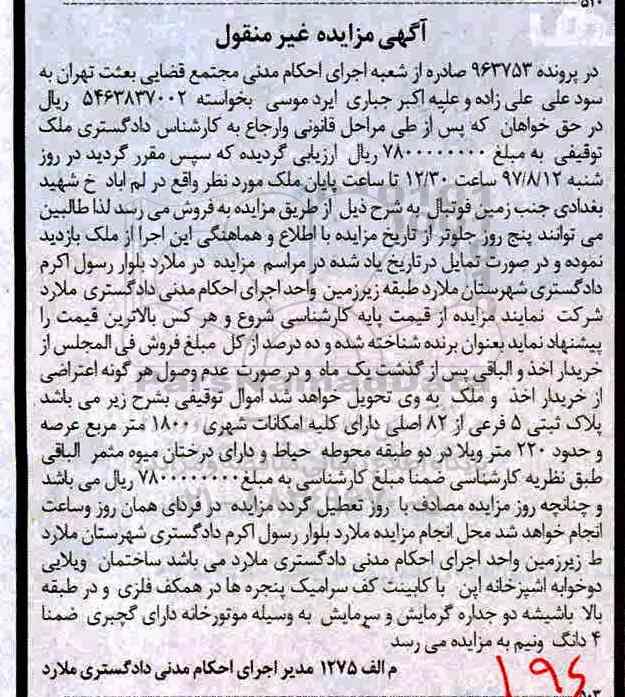 ۵۲۰
آگهی مزایده غیر منقول
در پرونده ۹۶۳۷۵۳ صادره از شعبه اجرای احکام مدنی مجتمع قضایی بعثت تهران به
سود علی علی زاده و علیه اکبر جباری ایرد موسی بخواسته ۵۴۶۳۸۳۷۰۰۲ ریال
در حق خواهان که پس از طی مراحل قانونی وارجاع به کارشناس دادگستری ملک
توقیفی به مبلغ ۷۸۰۰۰۰۰۰۰۰ ریال ارزیابی گردیده که سپس مقرر گردید در روز
شنبه ۹۷/۸/۱۲ ساعت ۱۲/۳۰ تا ساعت پایان ملک مورد نظر واقع در لم اباد خ شهید
بغدادی جنب زمین فوتبال به شرح ذیل از طریق مزایده به فروش می رسد لذا طالبین
می توانند پنج روز جلوتر از تاریخ مزایده با اطلاع و هماهنگی این اجرا از ملک بازدید
نموده و در صورت تمایل در تاریخ یاد شده در مراسم مزایده در ملارد بلوار رسول اکرم
دادگستری شهرستان ملارد طبقه زیرزمین واحد اجرای احکام مدنی دادگستری ملارد
شرکت نمایند مزایده از قیمت پایه کارشناسی شروع و هر کس بالاترین قیمت را
پیشنهاد نماید بعنوان برنده شناخته شده و ده درصد از کل مبلغ فروش فی المجلس از
خریدار اخذ و الباقی پس از گذشت یک ماه و در صورت عدم وصول هر گونه اعتراضی
از خریدار اخذ و ملک به وی تحویل خواهد شد اموال توقیفی بشرح زیر می باشد
پلاک ثبتی ۵ فرعی از ۸۲ اصلی دارای کلیه امکانات شهری ۱۸۰۰ متر مربع عرصه
و حدود ۲۲۰ متر ویلا در دو طبقه محوطه حیاط و دارای درختان میوه مثمر الباقی
طبق نظریه کارشناسی ضمنا مبلغ کارشناسی به مبلغ ۷۸۰۰۰۰۰۰۰۰ ریال می باشد
و چنانچه روز مزایده مصادف با روز تعطیل گردد مزایده در فردای همان روز وساعت
انجام خواهد شد محل انجام مزایده ملارد بلوار رسول اکرم دادگستری شهرستان ملارد
ط زیرزمین واحد اجرای احکام مدنی دادگستری ملارد می باشد ساختمان ویلایی
دوخوابه اشپزخانه اپن با کابینت کف سرامیک پنجره ها در همکف فلزی و در طبقه
بالا باشیشه دو جداره گرمایش و سرمایش به وسیله موتورخانه دارای گچبری ضمنا
۴ دانگ ونیم به مزایده می رسد
م الف ۱۲۷۵ مدیر اجرای احکام مدنی دادگستری ملارد
۱۹۶